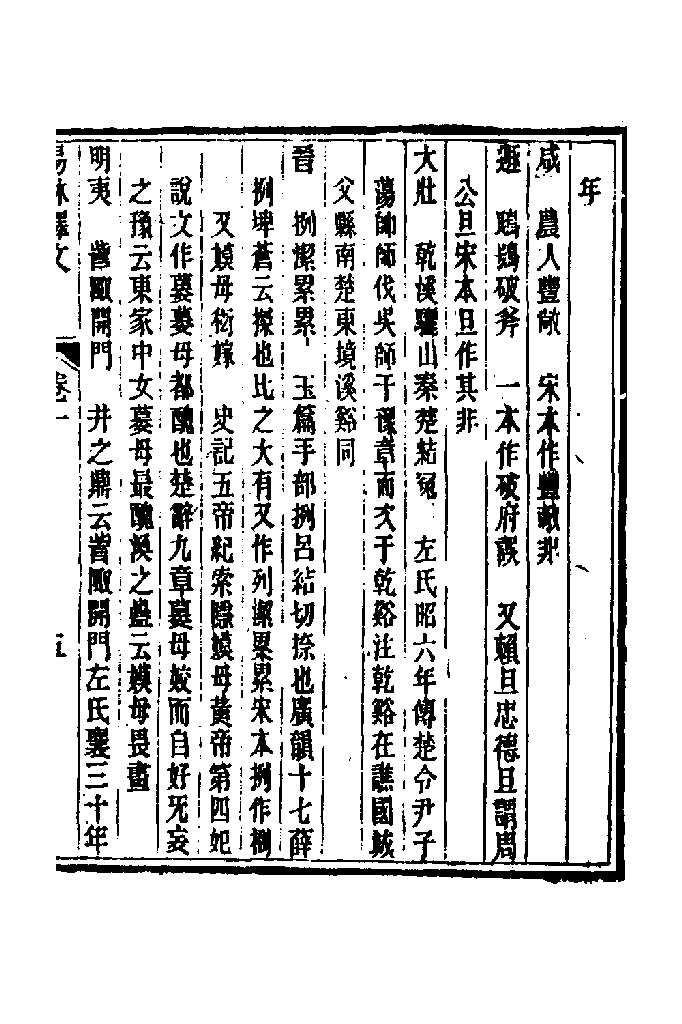 年
咸　農人豐敞　宋本作豐敵非
遯　鴟鴞破斧　一本作破府誤　又賴旦忠德旦謂周
公旦宋本旦作其非
大壯　乾溪驪山秦楚結冤　左氏昭六年傳楚令尹子
蕩帥師伐吳師于豫章而次于乾谿注乾谿在譙國城
父縣南楚東境溪谿同
晉　捌潔累累　玉篇手部捌呂結切捺也廣韻十七薛
捌埤蒼云搩也比之大有又作列潔累累宋本捌作櫥
又嫫母衒嫁　史記五帝紀索隱嫫母黃帝第四妃
說文作䒬䒬母都醜也楚辭九章䒬母姣而自好旡妄
之豫云東家中女䒬母最醜渙之蠱云嫫母畏晝
明夷　訾陬開門　井之鼎云訾陬開門左氏襄三十年
易林釋文　卷一　五